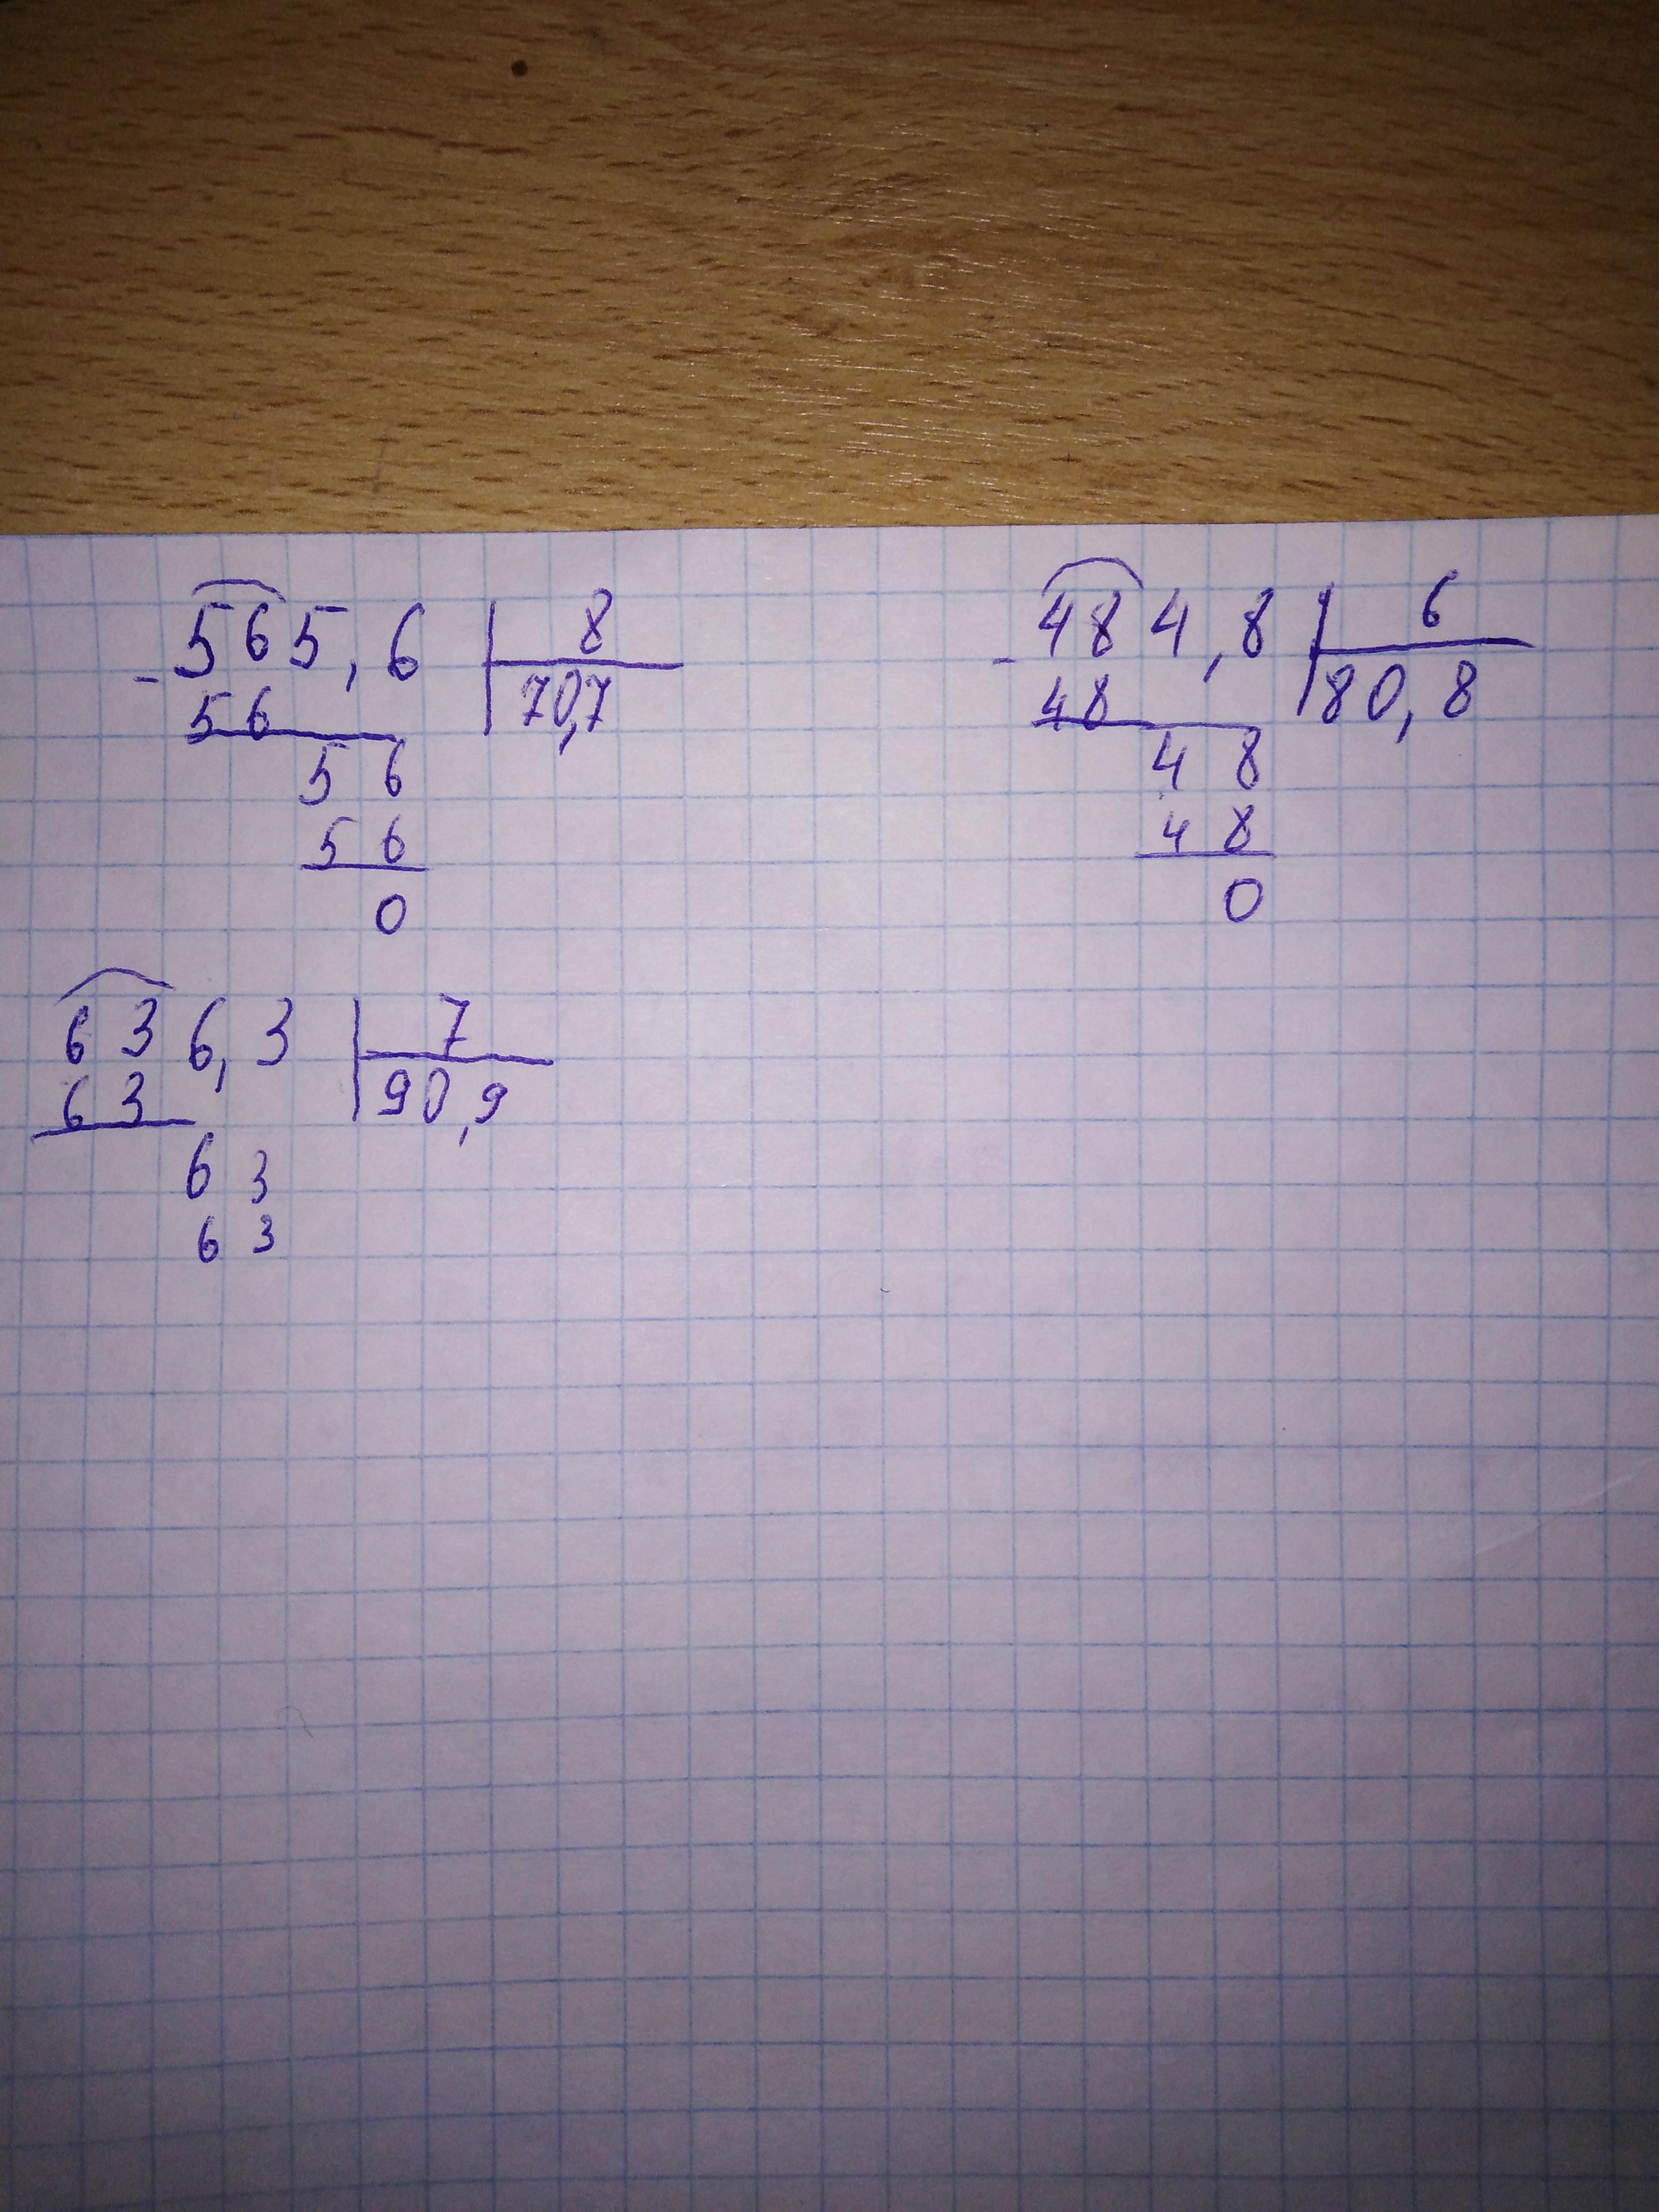 565,6 8
- 56 70,7
56
56
0
484,8 6
- 48 80,8
48
48
0
636,3 7
63 90,9
63
63